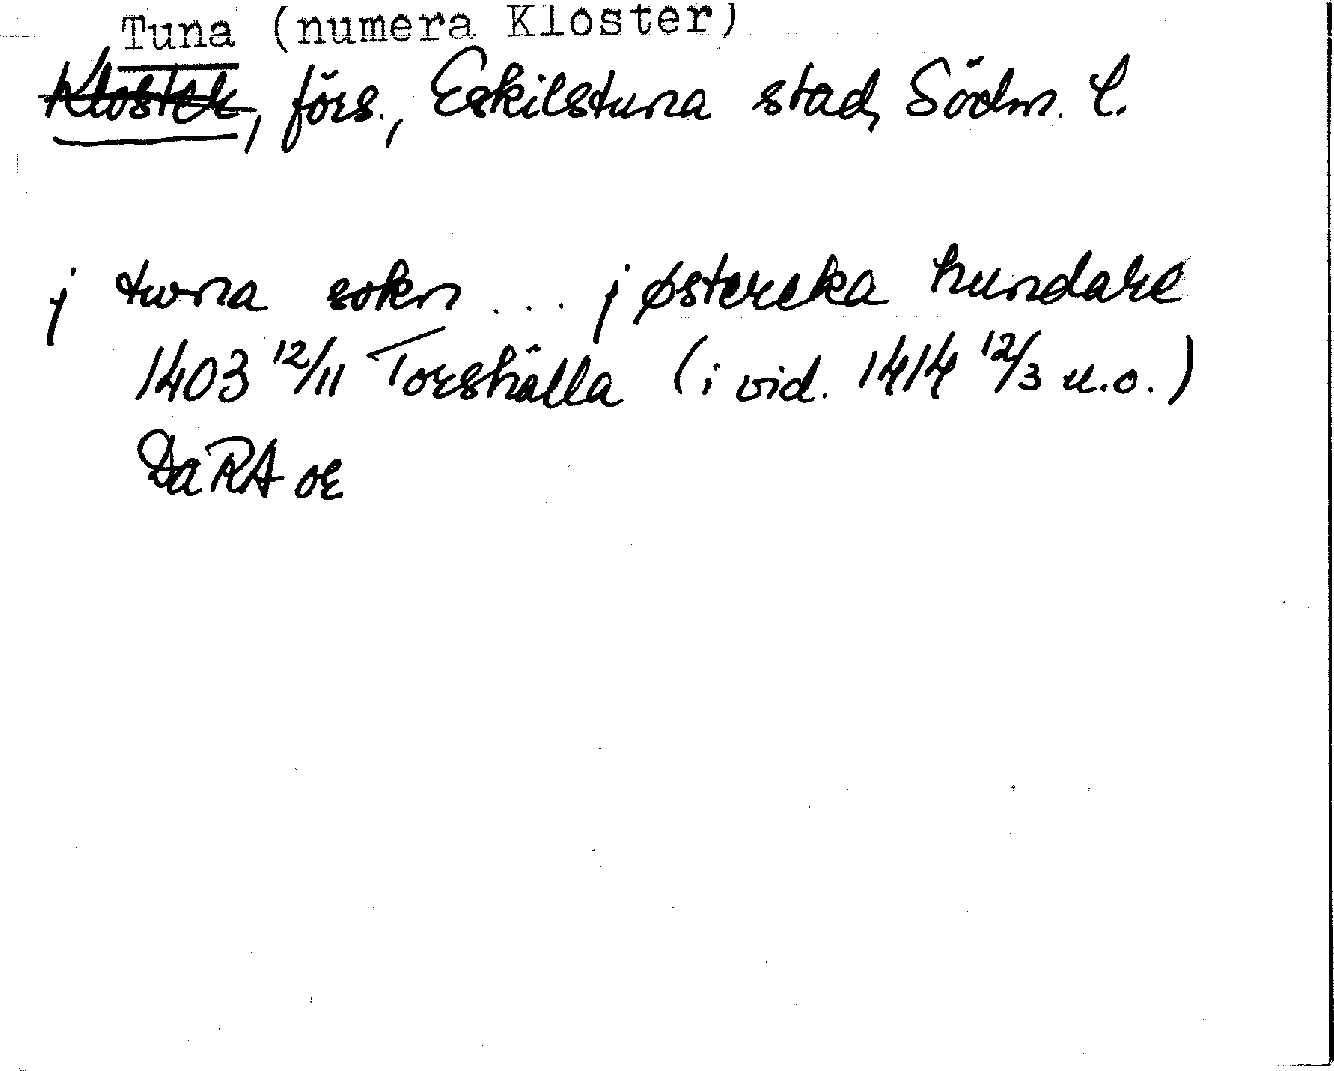 Tuna (numera Kloster)
Kloster, förs., Eskilstuna stad, Södm. l.
j twna sokn ... j østerreka hundare
1403 12/11 Torshälla (i vid. 1414 12/3 u.o.)
DaRA or